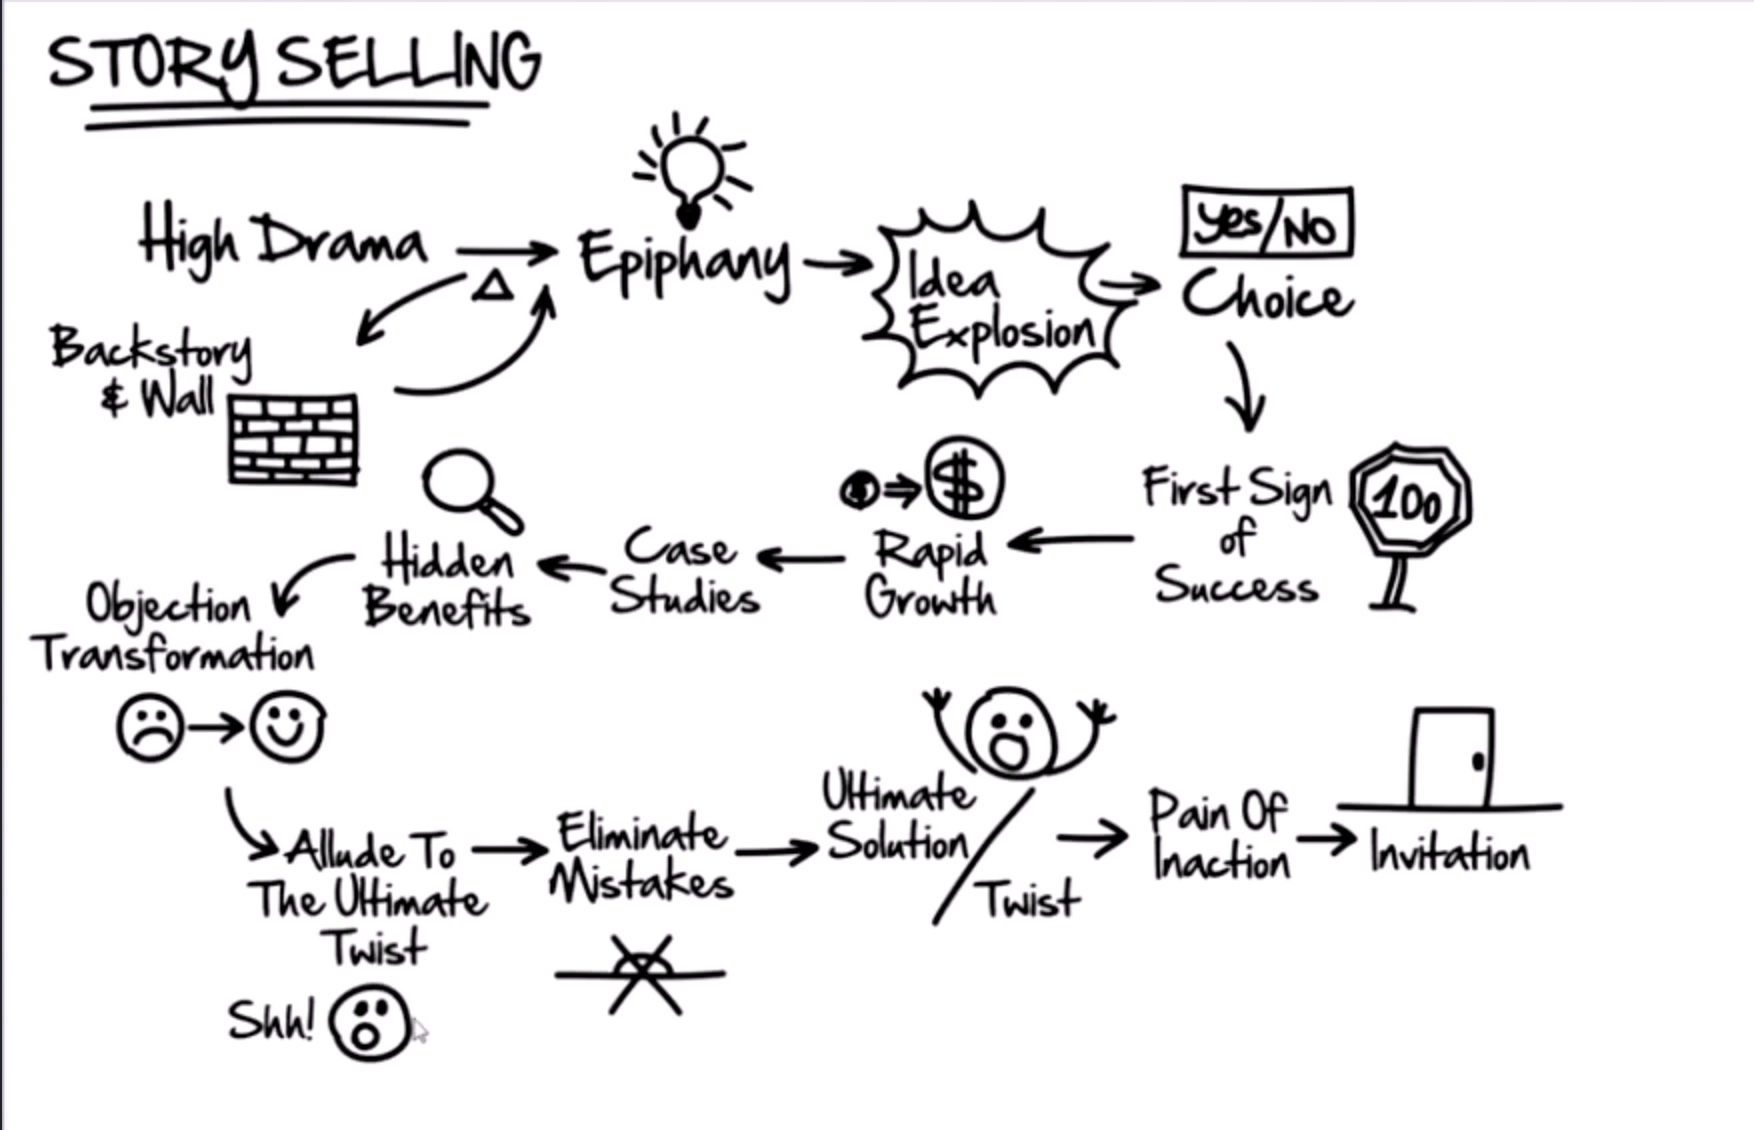 STORY SELLING
High Drama
Epiphany
Idea
Explosion
Yes/No
Choice
Backstory
& Wall
First Sign
of
Success
100
$
$
Rapid
Growth
Case
Studies
Hidden
Benefits
Objection
Transformation
Allude To
The Ultimate
Twist
Shh!
Eliminate
Mistakes
Ultimate
Solution
Twist
Pain Of
Inaction
Invitation